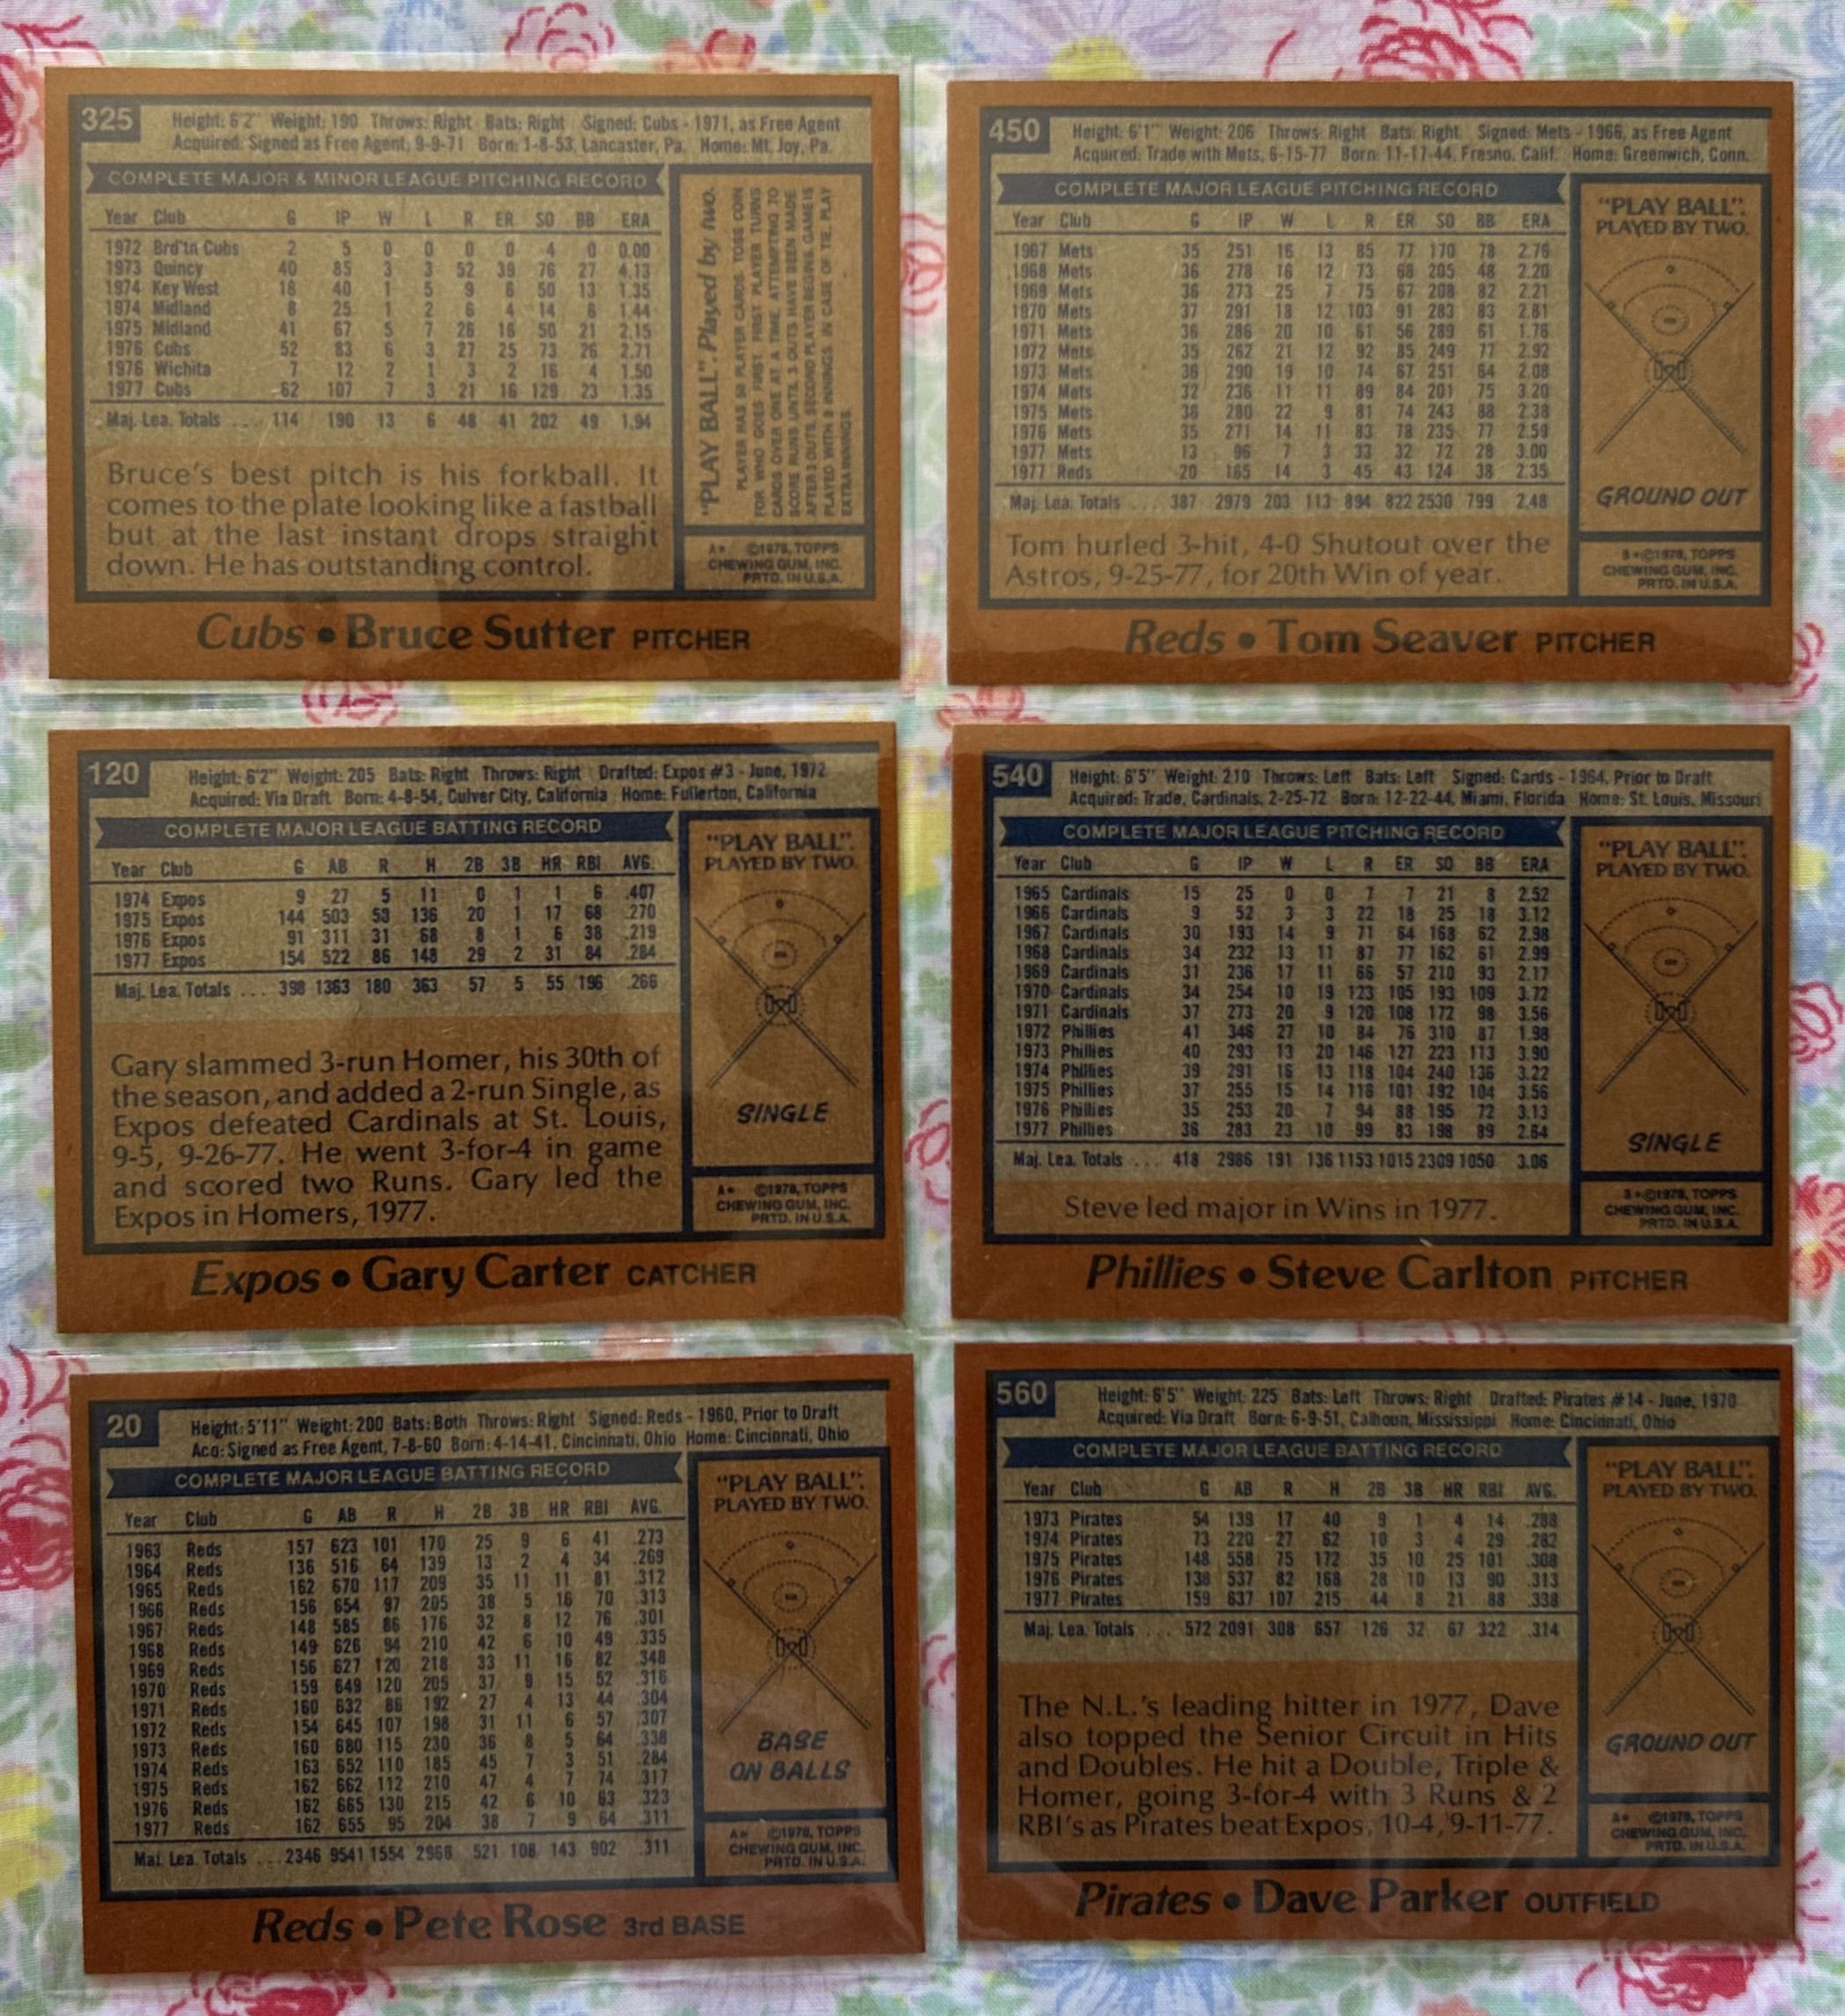 325
Height: 6'2" Weight: 190 Throws: Right Bats: Right Signed: Cubs - 1971, as Free Agent
Acquired: Signed as Free Agent, 9-9-71 Born: 1-8-53, Lancaster, Pa. Home: Mt. Joy, Pa.
COMPLETE MAJOR & MINOR LEAGUE PITCHING RECORD
Year Club G IP W L R ER SO BB ERA
1972 Brd'tn Cubs 2 5 0 0 0 0 4 0 0.00
1973 Quincy 40 85 3 3 52 39 76 27 4.13
1974 Key West 18 40 1 5 9 6 50 13 1.35
1974 Midland 8 25 1 2 6 4 14 6 1.44
1975 Midland 41 67 5 7 26 16 50 21 2.15
1976 Cubs 52 83 6 3 27 25 73 26 2.71
1976 Wichita 7 12 2 1 3 2 16 4 1.50
1977 Cubs 62 107 7 3 21 16 129 23 1.35
Maj. Lea. Totals ... 114 190 13 6 48 41 202 49 1.94
Bruce's best pitch is his forkball. It
comes to the plate looking like a fastball
but at the last instant drops straight
down. He has outstanding control.
"PLAY BALL". Played by two.
PLAYER HAS 50 PLAYER CARDS. TOSS COIN
FOR WHO GOES FIRST. FIRST PLAYER TURNS
CARDS OVER ONE AT A TIME, ATTEMPTING TO
SCORE RUNS UNTIL 3 OUTS HAVE BEEN MADE
AFTER 3 OUTS, SECOND PLAYER BEGINS. GAME IS
PLAYED WITH 9 INNINGS. IN CASE OF TIE, PLAY
EXTRA INNINGS.
A* ©1978, TOPPS
CHEWING GUM, INC.
PRTD. IN U.S.A.
Cubs • Bruce Sutter PITCHER
450
Height: 6'1" Weight: 206 Throws: Right Bats: Right Signed: Mets - 1966, as Free Agent
Acquired: Trade with Mets, 6-15-77 Born: 11-17-44, Fresno, Calif. Home: Greenwich, Conn.
COMPLETE MAJOR LEAGUE PITCHING RECORD
Year Club G IP W L R ER SO BB ERA
1967 Mets 35 251 16 13 85 77 170 78 2.76
1968 Mets 36 278 16 12 73 68 205 48 2.20
1969 Mets 36 273 25 7 75 67 208 82 2.21
1970 Mets 37 291 18 12 103 91 283 83 2.81
1971 Mets 36 286 20 10 61 56 289 61 1.76
1972 Mets 35 262 21 12 92 85 249 77 2.92
1973 Mets 36 290 19 10 74 67 251 64 2.08
1974 Mets 32 236 11 11 89 84 201 75 3.20
1975 Mets 36 280 22 9 81 74 243 88 2.38
1976 Mets 35 271 14 11 83 78 235 77 2.59
1977 Mets 13 96 7 3 33 32 72 28 3.00
1977 Reds 20 165 14 3 45 43 124 38 2.35
Maj. Lea. Totals ... 387 2979 203 113 894 822 2530 799 2.48
Tom hurled 3-hit, 4-0 Shutout over the
Astros, 9-25-77, for 20th Win of year.
"PLAY BALL".
PLAYED BY TWO.
GROUND OUT
B* ©1978, TOPPS
CHEWING GUM, INC.
PRTD. IN U.S.A.
Reds • Tom Seaver PITCHER
120
Height: 6'2" Weight: 205 Bats: Right Throws: Right Drafted: Expos #3 - June, 1972
Acquired: Via Draft Born: 4-8-54, Culver City, California Home: Fullerton, California
COMPLETE MAJOR LEAGUE BATTING RECORD
Year Club G AB R H 2B 3B HR RBI AVG.
1974 Expos 9 27 5 11 0 1 1 6 .407
1975 Expos 144 503 58 136 20 1 17 68 .270
1976 Expos 91 311 31 68 8 1 6 38 .219
1977 Expos 154 522 86 148 29 2 31 84 .284
Maj. Lea. Totals ... 398 1363 180 363 57 5 55 196 .266
Gary slammed 3-run Homer, his 30th of
the season, and added a 2-run Single, as
Expos defeated Cardinals at St. Louis,
9-5, 9-26-77. He went 3-for-4 in game
and scored two Runs. Gary led the
Expos in Homers, 1977.
"PLAY BALL".
PLAYED BY TWO.
SINGLE
A* ©1978, TOPPS
CHEWING GUM, INC.
PRTD. IN U.S.A.
Expos • Gary Carter CATCHER
540
Height: 6'5" Weight: 210 Throws: Left Bats: Left Signed: Cards - 1964, Prior to Draft
Acquired: Trade, Cardinals, 2-25-72 Born: 12-22-44, Miami, Florida Home: St. Louis, Missouri
COMPLETE MAJOR LEAGUE PITCHING RECORD
Year Club G IP W L R ER SO BB ERA
1965 Cardinals 15 25 0 0 7 7 21 8 2.52
1966 Cardinals 9 52 3 3 22 18 25 18 3.12
1967 Cardinals 30 193 14 9 71 64 168 62 2.98
1968 Cardinals 34 232 13 11 87 77 162 61 2.99
1969 Cardinals 31 236 17 11 66 57 210 93 2.17
1970 Cardinals 34 254 10 19 123 105 193 109 3.72
1971 Cardinals 37 273 20 9 120 108 172 98 3.56
1972 Phillies 41 346 27 10 84 76 310 87 1.98
1973 Phillies 40 293 13 20 146 127 223 113 3.90
1974 Phillies 39 291 16 13 118 104 240 136 3.22
1975 Phillies 37 255 15 14 116 101 192 104 3.56
1976 Phillies 35 253 20 7 94 88 195 72 3.13
1977 Phillies 36 283 23 10 99 83 198 89 2.64
Maj. Lea. Totals ... 418 2986 191 136 1153 1015 2309 1050 3.06
Steve led major in Wins in 1977.
"PLAY BALL".
PLAYED BY TWO.
SINGLE
B* ©1978, TOPPS
CHEWING GUM, INC.
PRTD. IN U.S.A.
Phillies • Steve Carlton PITCHER
20
Height: 5'11" Weight: 200 Bats: Both Throws: Right Signed: Reds - 1960, Prior to Draft
Acq: Signed as Free Agent, 7-8-60 Born: 4-14-41, Cincinnati, Ohio Home: Cincinnati, Ohio
COMPLETE MAJOR LEAGUE BATTING RECORD
Year Club G AB R H 2B 3B HR RBI AVG.
1963 Reds 157 623 101 170 25 9 6 41 .273
1964 Reds 136 516 64 139 13 2 4 34 .269
1965 Reds 162 670 117 209 35 11 11 81 .312
1966 Reds 156 654 97 205 38 5 16 70 .313
1967 Reds 148 585 86 176 32 8 12 76 .301
1968 Reds 149 626 94 210 42 6 10 49 .335
1969 Reds 156 627 120 218 33 11 16 82 .348
1970 Reds 159 649 120 205 37 9 15 52 .316
1971 Reds 160 632 86 192 27 4 13 44 .304
1972 Reds 154 645 107 198 31 11 6 57 .307
1973 Reds 160 680 115 230 36 8 5 64 .338
1974 Reds 163 652 110 185 45 7 3 51 .284
1975 Reds 162 662 112 210 47 4 7 74 .317
1976 Reds 162 665 130 215 42 6 10 63 .323
1977 Reds 162 655 95 204 38 7 9 64 .311
Maj. Lea. Totals ... 2346 9541 1554 2966 521 108 143 902 .311
"PLAY BALL".
PLAYED BY TWO.
BASE
ON BALLS
A* ©1978, TOPPS
CHEWING GUM, INC.
PRTD. IN U.S.A.
Reds • Pete Rose 3rd BASE
560
Height: 6'5" Weight: 225 Bats: Left Throws: Right Drafted: Pirates #14 - June, 1970
Acquired: Via Draft Born: 6-9-51, Calhoun, Mississippi Home: Cincinnati, Ohio
COMPLETE MAJOR LEAGUE BATTING RECORD
Year Club G AB R H 2B 3B HR RBI AVG.
1973 Pirates 54 139 17 40 9 1 4 14 .288
1974 Pirates 73 220 27 62 10 3 4 29 .282
1975 Pirates 148 558 75 172 35 10 25 101 .308
1976 Pirates 138 537 82 168 28 10 13 90 .313
1977 Pirates 159 637 107 215 44 8 21 88 .338
Maj. Lea. Totals ... 572 2091 308 657 126 32 67 322 .314
The N.L.'s leading hitter in 1977, Dave
also topped the Senior Circuit in Hits
and Doubles. He hit a Double, Triple &
Homer, going 3-for-4 with 3 Runs & 2
RBI's as Pirates beat Expos, 10-4, 9-11-77.
"PLAY BALL".
PLAYED BY TWO.
GROUND OUT
A* ©1978, TOPPS
CHEWING GUM, INC.
PRTD. IN U.S.A.
Pirates • Dave Parker OUTFIELD